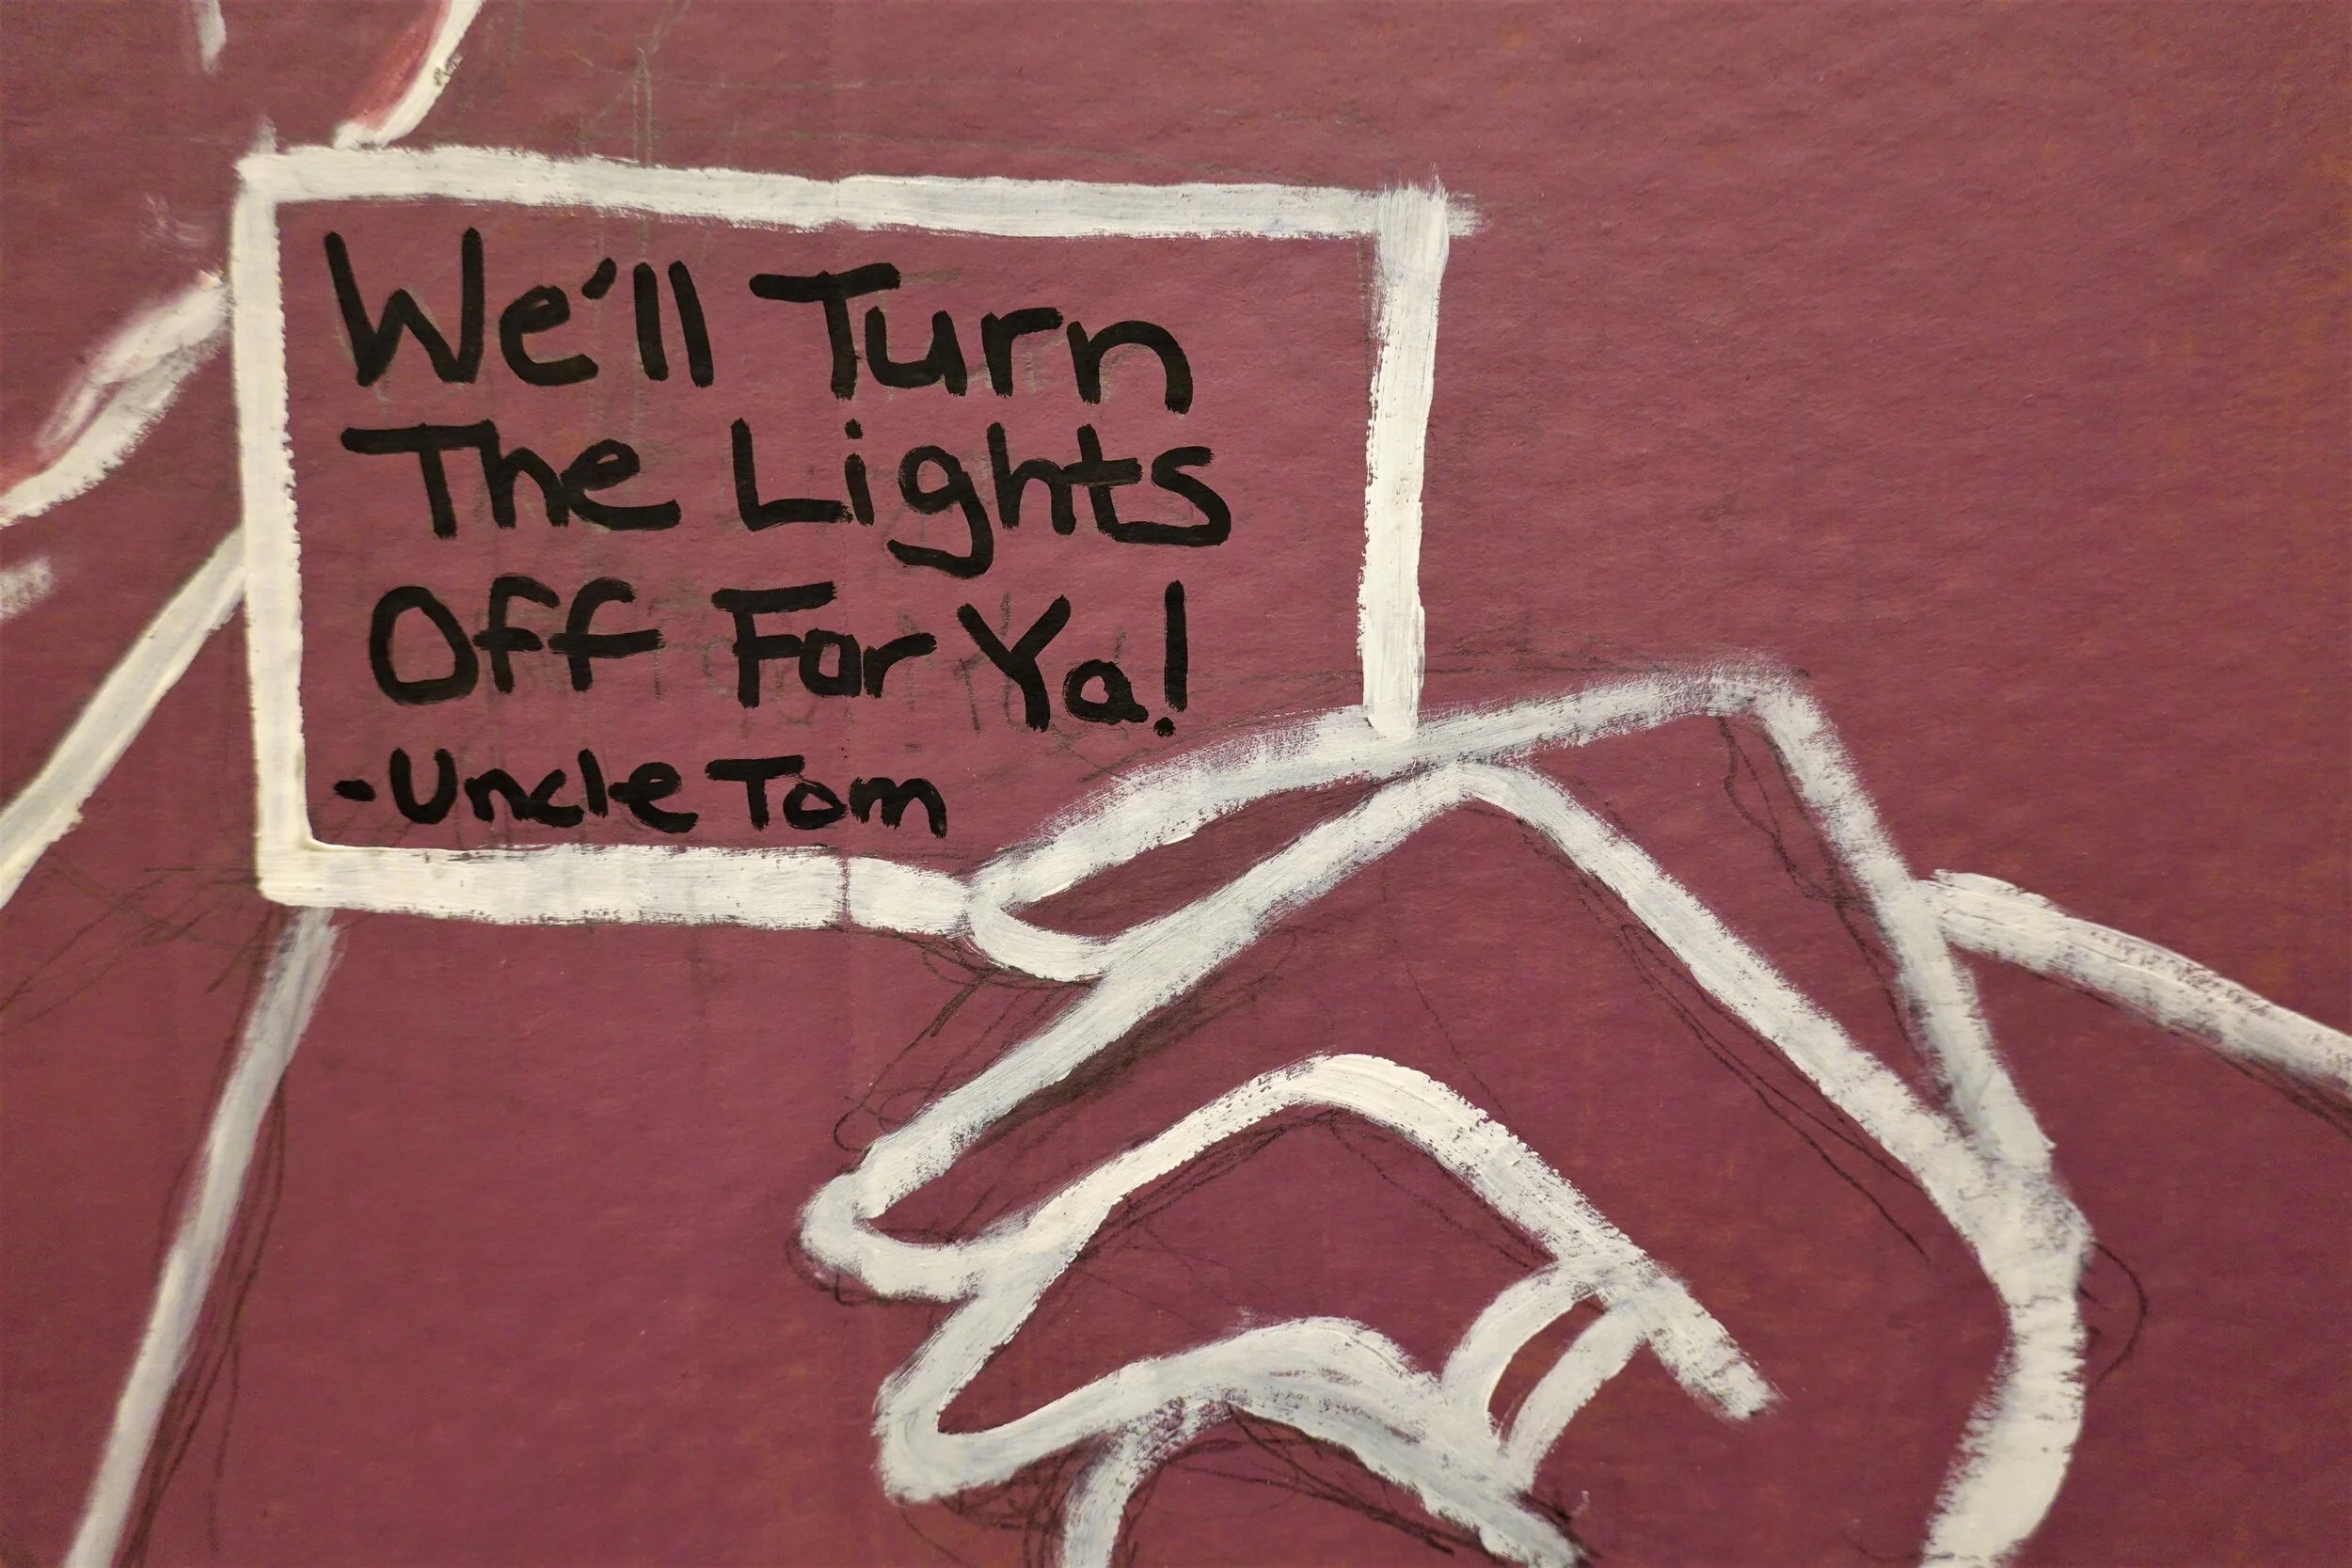 We'll Turn
The Lights
Off For Ya!
-Uncle Tom